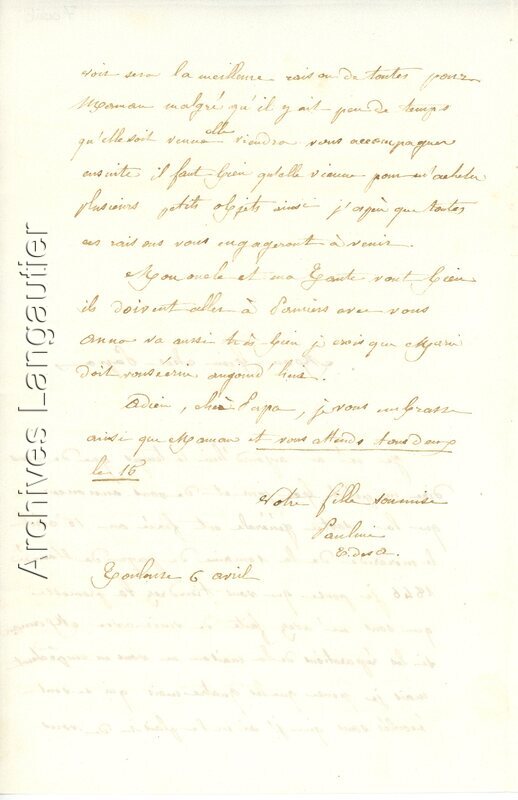 voir sera la meilleure raison de toutes pour
Maman malgré qu'il y ait peu de temps
qu'elle soit venue elle viendra vous accompagner
ensuite il faut bien qu'elle vienne pour m'acheter
plusieurs petits objets ainsi j'espère que toutes
ces raisons vous engageront à venir.
Mon oncle et ma Tante vont bien
ils doivent aller à Pamiers avec vous
Anna va aussi très bien je crois que Marie
doit vous écrire aujourd'hui.
Adieu, cher Papa, je vous embrasse
ainsi que Maman et vous attends tous deux
le 16
Votre fille soumise
Pauline
Toulouse 6 avril
Archives Langautier